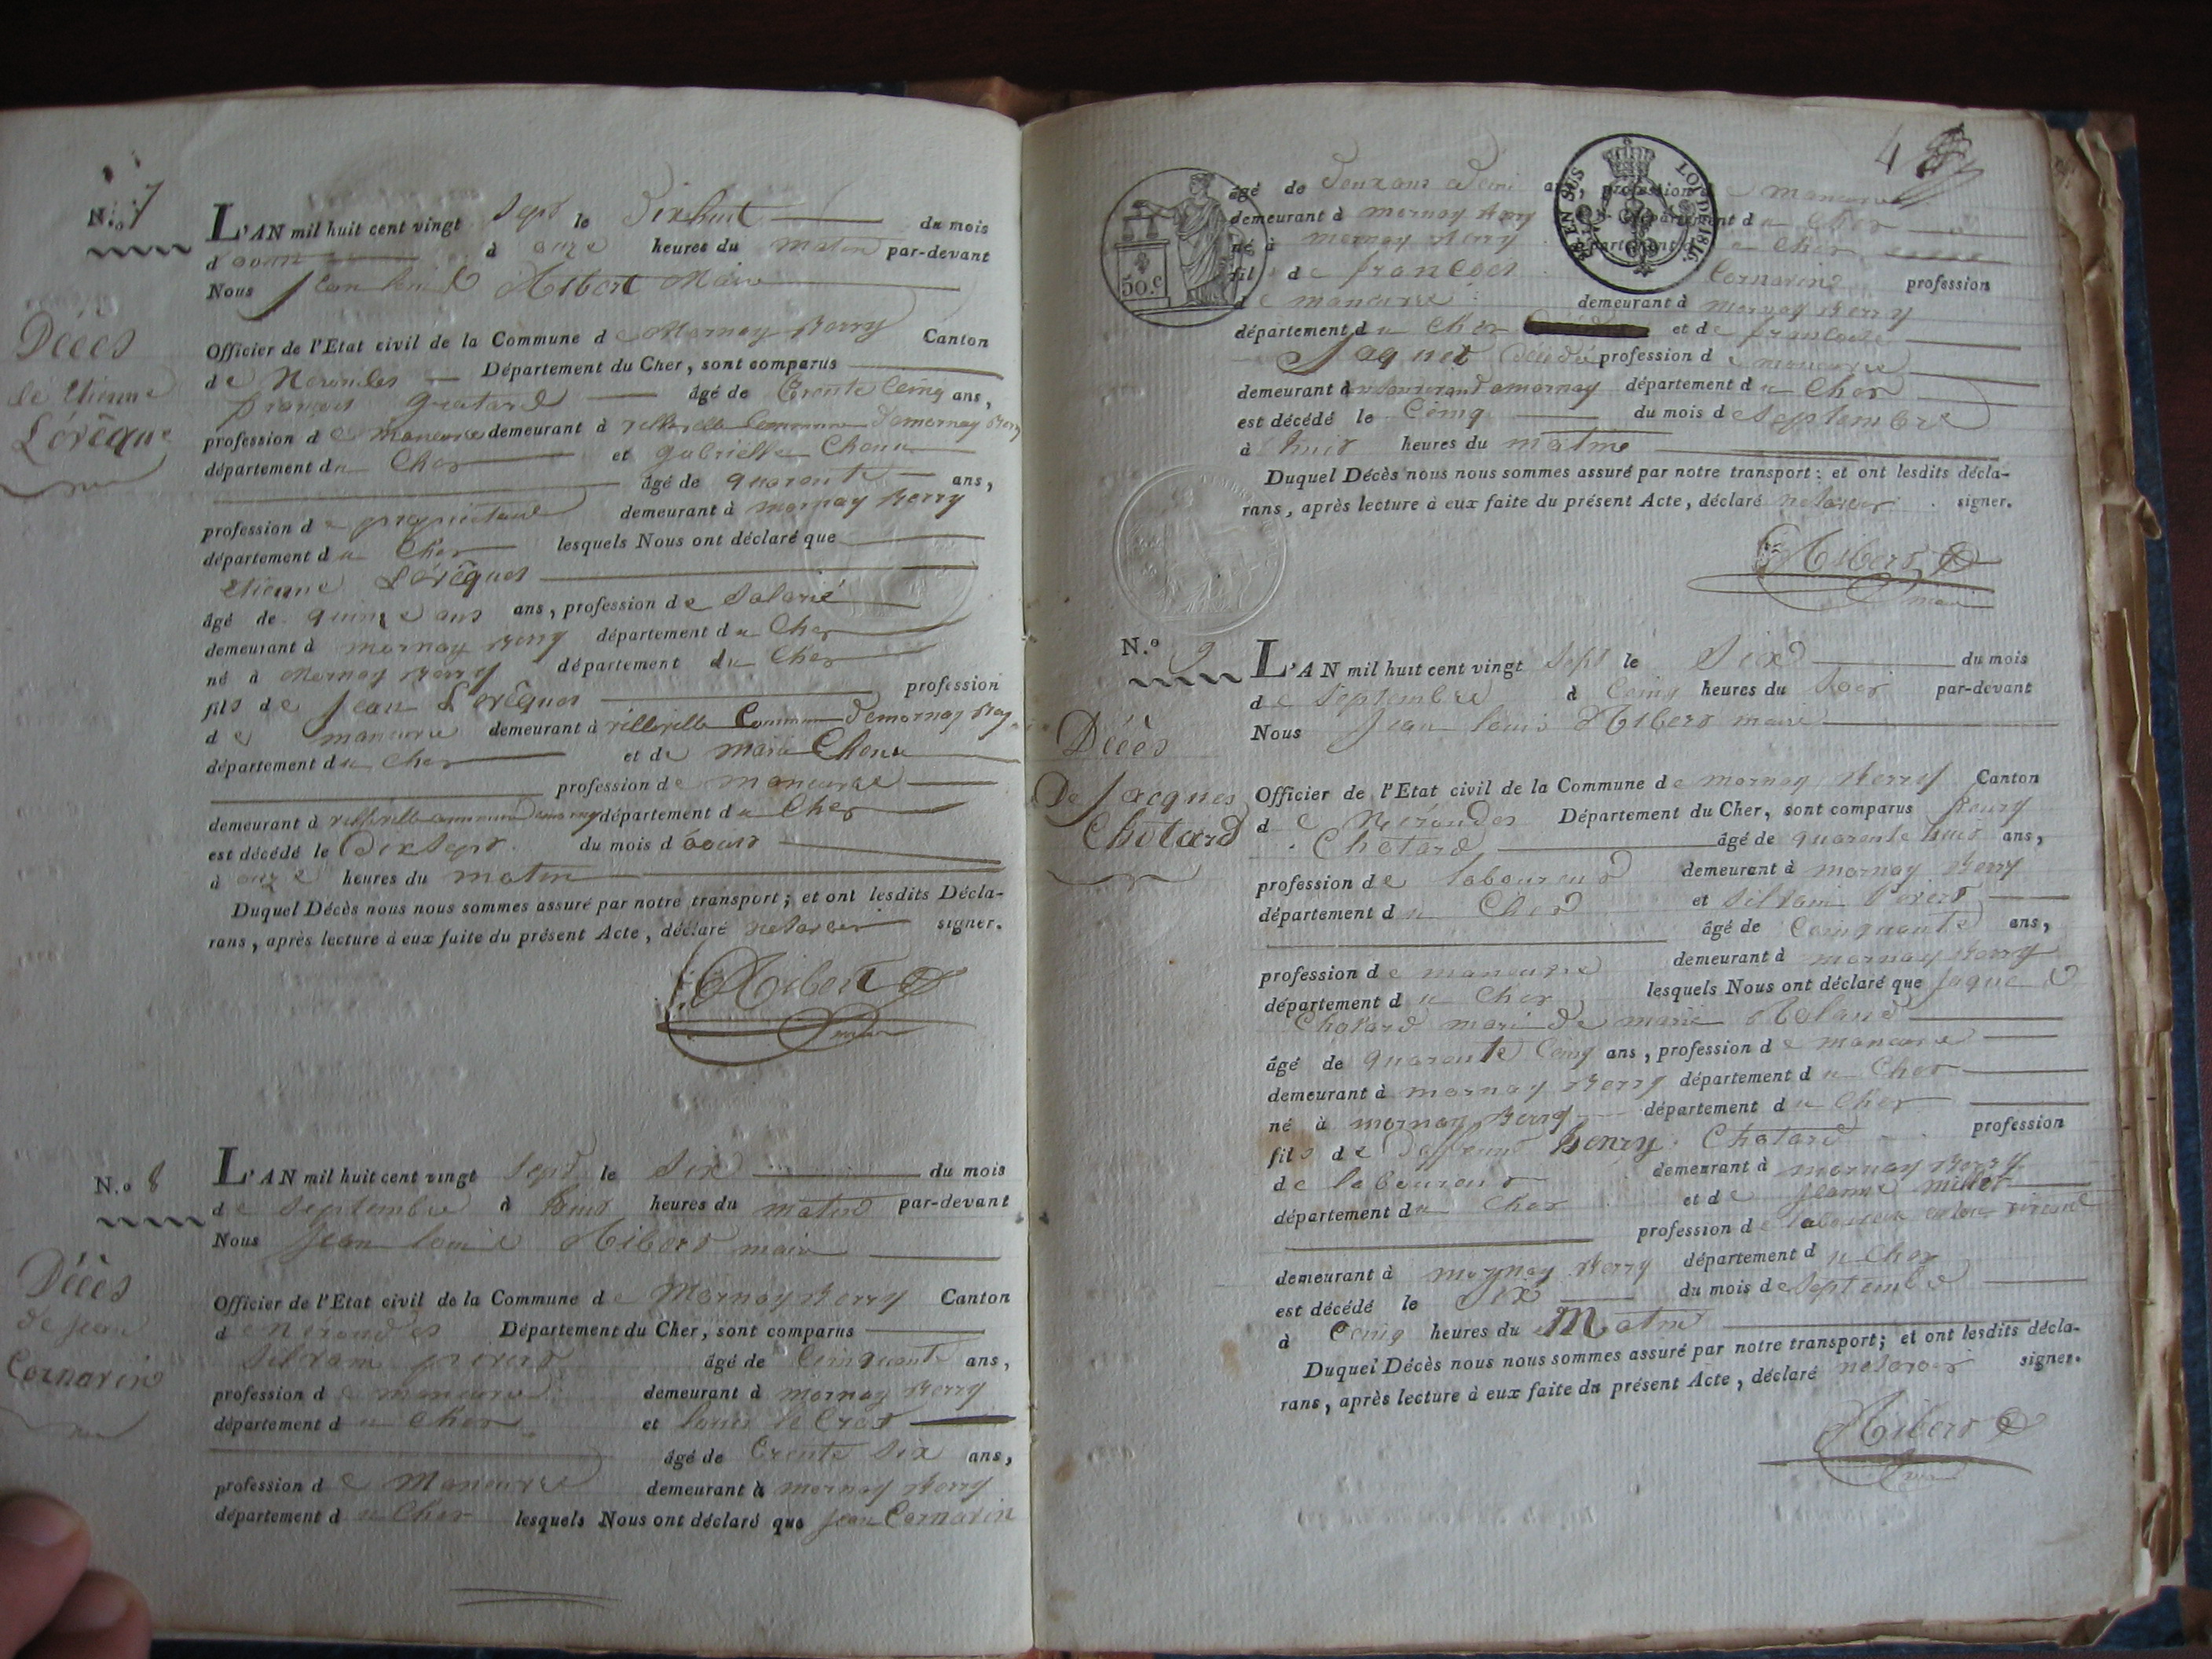 N.º 7
Décès
de Etienne
Lévêque
L'AN mil huit cent vingt sept le Dixhuit du mois
d'août à onze heures du matin par-devant
Nous Jean Louis Maire
Officier de l'Etat civil de la Commune de Mornay Berry Canton
de Nerondes Département du Cher, sont comparus
françois âgé de trente Cinq ans,
profession de maneuvre demeurant à villeville Commune de mornay Berry
département du Cher et gabrielle Chenu
âgé de quarente ans,
profession de propriétaire demeurant à mornay Berry
département du Cher lesquels Nous ont déclaré que
Etienne Lévêques
âgé de quinze ans ans, profession de Salarié
demeurant à mornay Berry département du Cher
né à Mornay Berry département du Cher
fils de Jean Levêques profession
de maneuvre demeurant à villeville Commune de mornay Berry
département du Cher et de marie Chenu
profession de maneuvre
demeurant à villeville commune de mornay département du Cher
est décédé le Dix Sept du mois d'août
à onze heures du matin
Duquel Décès nous nous sommes assuré par notre transport; et ont lesdits Décla-
rans, après lecture à eux faite du présent Acte, déclaré ne savoir signer.
N.º 8
Décès
de Jean
Cornavin
L'AN mil huit cent vingt Sept le Six du mois
de Septembre à heures du matin par-devant
Nous Jean Louis maire
Officier de l'Etat civil de la Commune de Mornay Berry Canton
de Nérondes Département du Cher, sont comparus
Silvain âgé de Cinquante ans,
profession de maneuvre demeurant à mornay Berry
département du Cher et Louis le Cros
âgé de trente Six ans,
profession de Maneuvre demeurant à mornay Berry
département du Cher lesquels Nous ont déclaré que Jean Cornavin
4
50.c
EN SUS LOI DE 1816.
âgé de Deux ans & Demi ans, profession de maneuvre
demeurant à mornay Berry département du Cher
né à mornay Berry département du Cher
fils de françois Cornavin profession
de maneuvre demeurant à mornay Berry
département du Cher et de françoise
Jaquet décédé profession de maneuvre
demeurant à mornay département du Cher
est décédé le Cinq du mois de Septembre
à huit heures du matin
Duquel Décès nous nous sommes assuré par notre transport; et ont lesdits décla-
rans, après lecture à eux faite du présent Acte, déclaré ne savoir signer.
maire
N.º 9
Décès
De Jacques
Chotard
L'AN mil huit cent vingt Sept le Six du mois
de Septembre à Cinq heures du Soir par-devant
Nous Jean Louis maire
Officier de l'Etat civil de la Commune de mornay Berry Canton
de Nérondes Département du Cher, sont comparus
Chotard âgé de quarente huit ans,
profession de laboureur demeurant à mornay Berry
département du Cher et Silvain
âgé de Cinquante ans,
profession de maneuvre demeurant à mornay Berry
département du Cher lesquels Nous ont déclaré que Jaque
Chotard mari de marie
âgé de quarente Cinq ans, profession de maneuvre
demeurant à mornay Berry département du Cher
né à mornay Berry département du Cher
fils de Deffeunt henry Chotard profession
de laboureur demeurant à mornay Berry
département du Cher et de Jeanne millet
profession de laboureur
demeurant à mornay Berry département du Cher
est décédé le Six du mois de Septembre
à Cinq heures du Matin
Duquel Décès nous nous sommes assuré par notre transport; et ont lesdits décla-
rans, après lecture à eux faite du présent Acte, déclaré ne savoir signer.